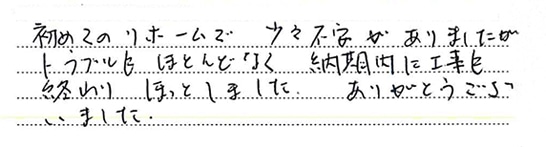 初めてのリホームで 少々不安がありましたが
トラブルも ほとんどなく 納期内に工事も
終わり ほっとしました. ありがとうござ
いました.